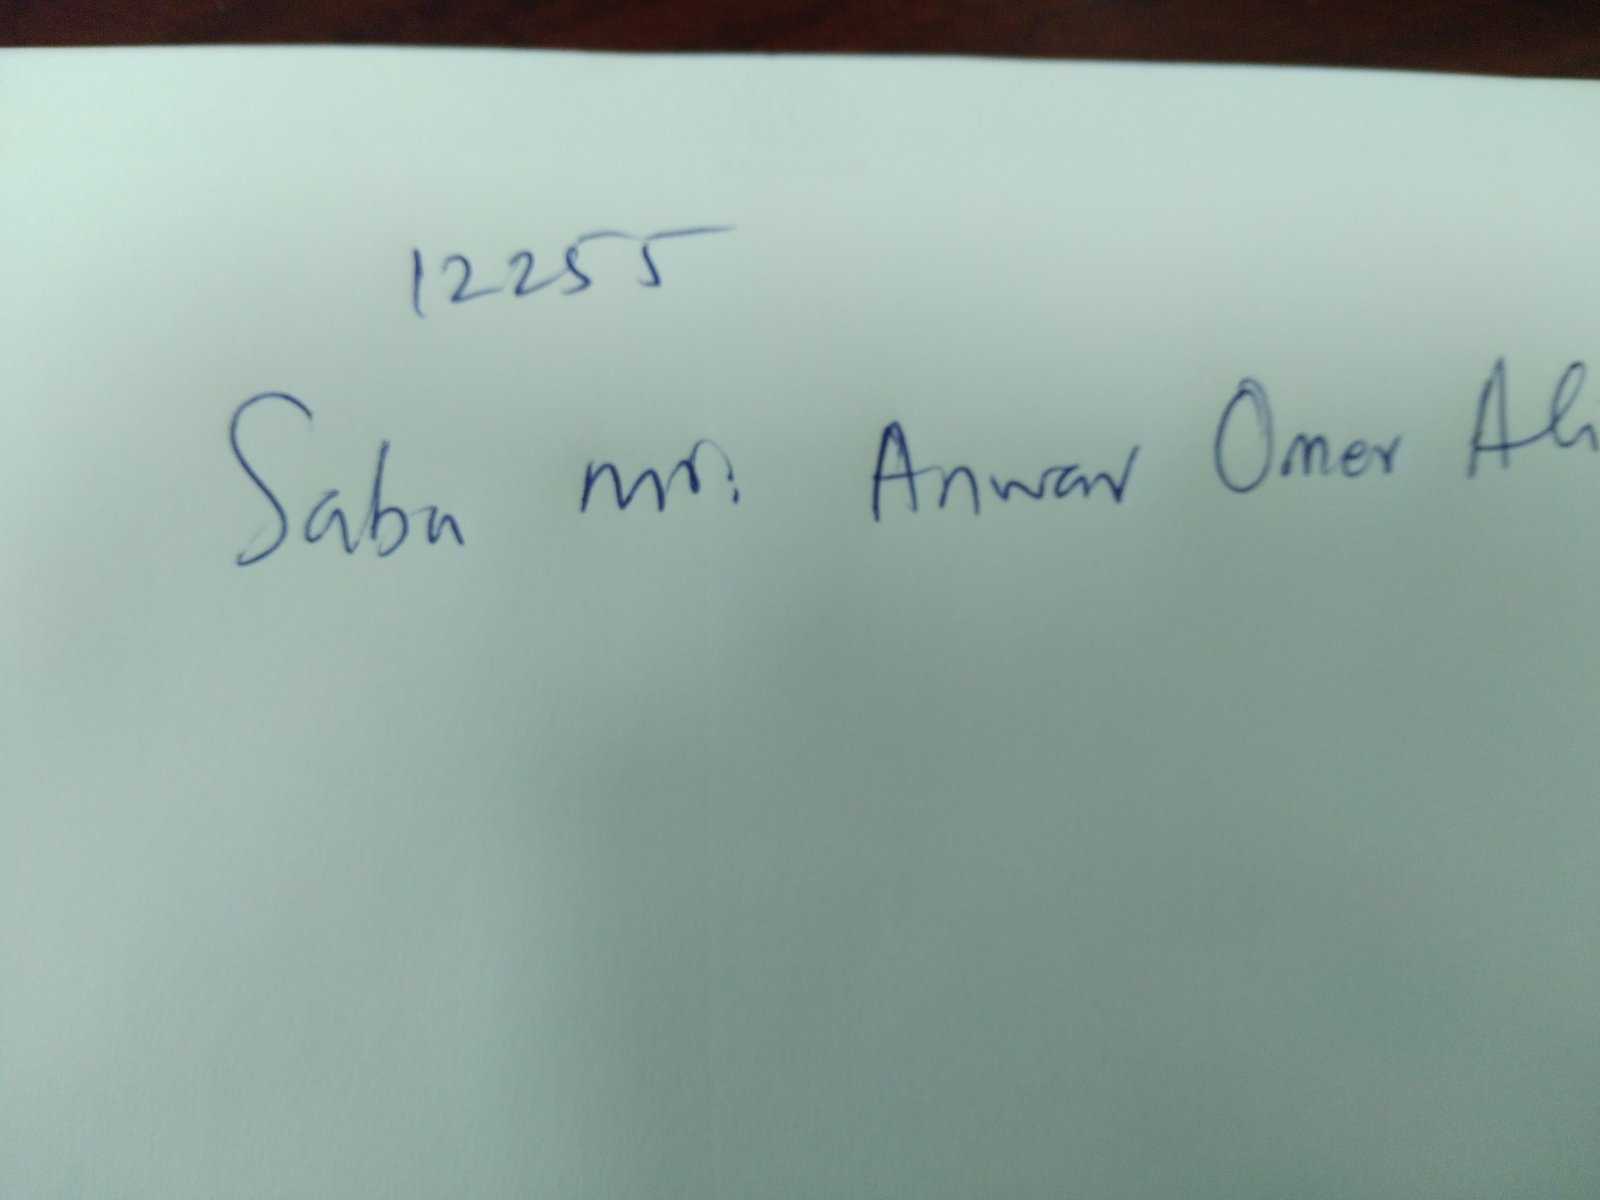 12255
Saba mr. Anwar Omer Ali